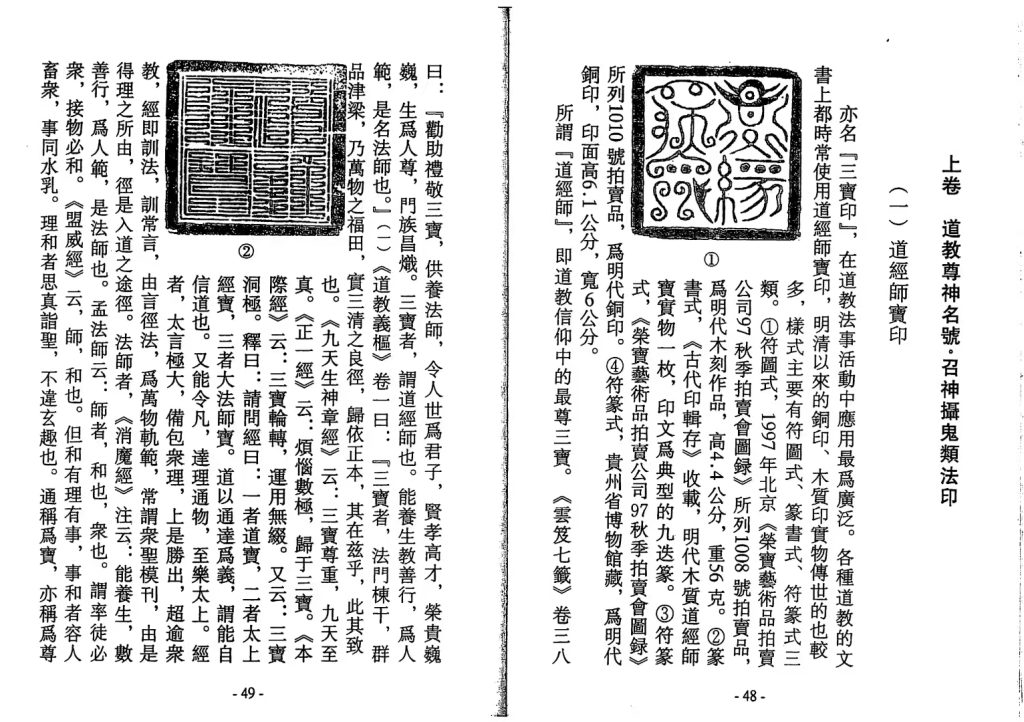 上卷　道教尊神名號·召神攝鬼類法印
（一）道經師寶印
亦名『三寶印』，在道教法事活動中應用最爲廣泛。各種道教的文
書上都時常使用道經師寶印，明清以來的銅印、木質印實物傳世的也較
多，樣式主要有符圖式、篆書式、符篆式三
類。①符圖式，1997年北京《榮寶藝術品拍賣
公司97秋季拍賣會圖録》所列1008號拍賣品，
爲明代木刻作品，高4.4公分，重56克。②篆
書式，《古代印輯存》收載，明代木質道經師
寶實物一枚，印文爲典型的九迭篆。③符篆
式，《榮寶藝術品拍賣公司97秋季拍賣會圖録》
①
所列1010號拍賣品，爲明代銅印。④符篆式，貴州省博物館藏，爲明代
銅印，印面高6.1公分，寬6公分。
所謂『道經師』，即道教信仰中的最尊三寶。《雲笈七籤》卷三八
- 48 -
曰：『勸助禮敬三寶，供養法師，令人世爲君子，賢孝高才，榮貴巍
巍，生爲人尊，門族昌熾。三寶者，謂道經師也。能養生教善行，爲人
範，是名法師也。』(一)《道教義樞》卷一曰：『三寶者，法門棟干，群
品津梁，乃萬物之福田，實三清之良徑，歸依正本，其在兹乎，此其致
也。《九天生神章經》云：三寶尊重，九天至
真。《正一經》云：煩惱數極，歸于三寶。《本
際經》云：三寶輪轉，運用無綴。又云：三寶
洞極。釋曰：請問經曰：一者道寶，二者太上
經寶，三者大法師寶。道以通達爲義，謂能自
信道也。又能令凡，達理通物，至樂太上。經
者，太言極大，備包衆理，上是勝出，超逾衆
②
教，經即訓法，訓常言，由言徑法，爲萬物軌範，常謂衆聖模刊，由是
得理之所由，徑是入道之途徑。法師者，《消魔經》注云：能養生，數
善行，爲人範，是法師也。孟法師云：師者，和也，衆也。謂率徒必
衆，接物必和。《盟威經》云，師，和也。但和有理有事，事和者容人
畜衆，事同水乳。理和者思真詣聖，不違玄趣也。通稱爲寶，亦稱爲尊
- 49 -